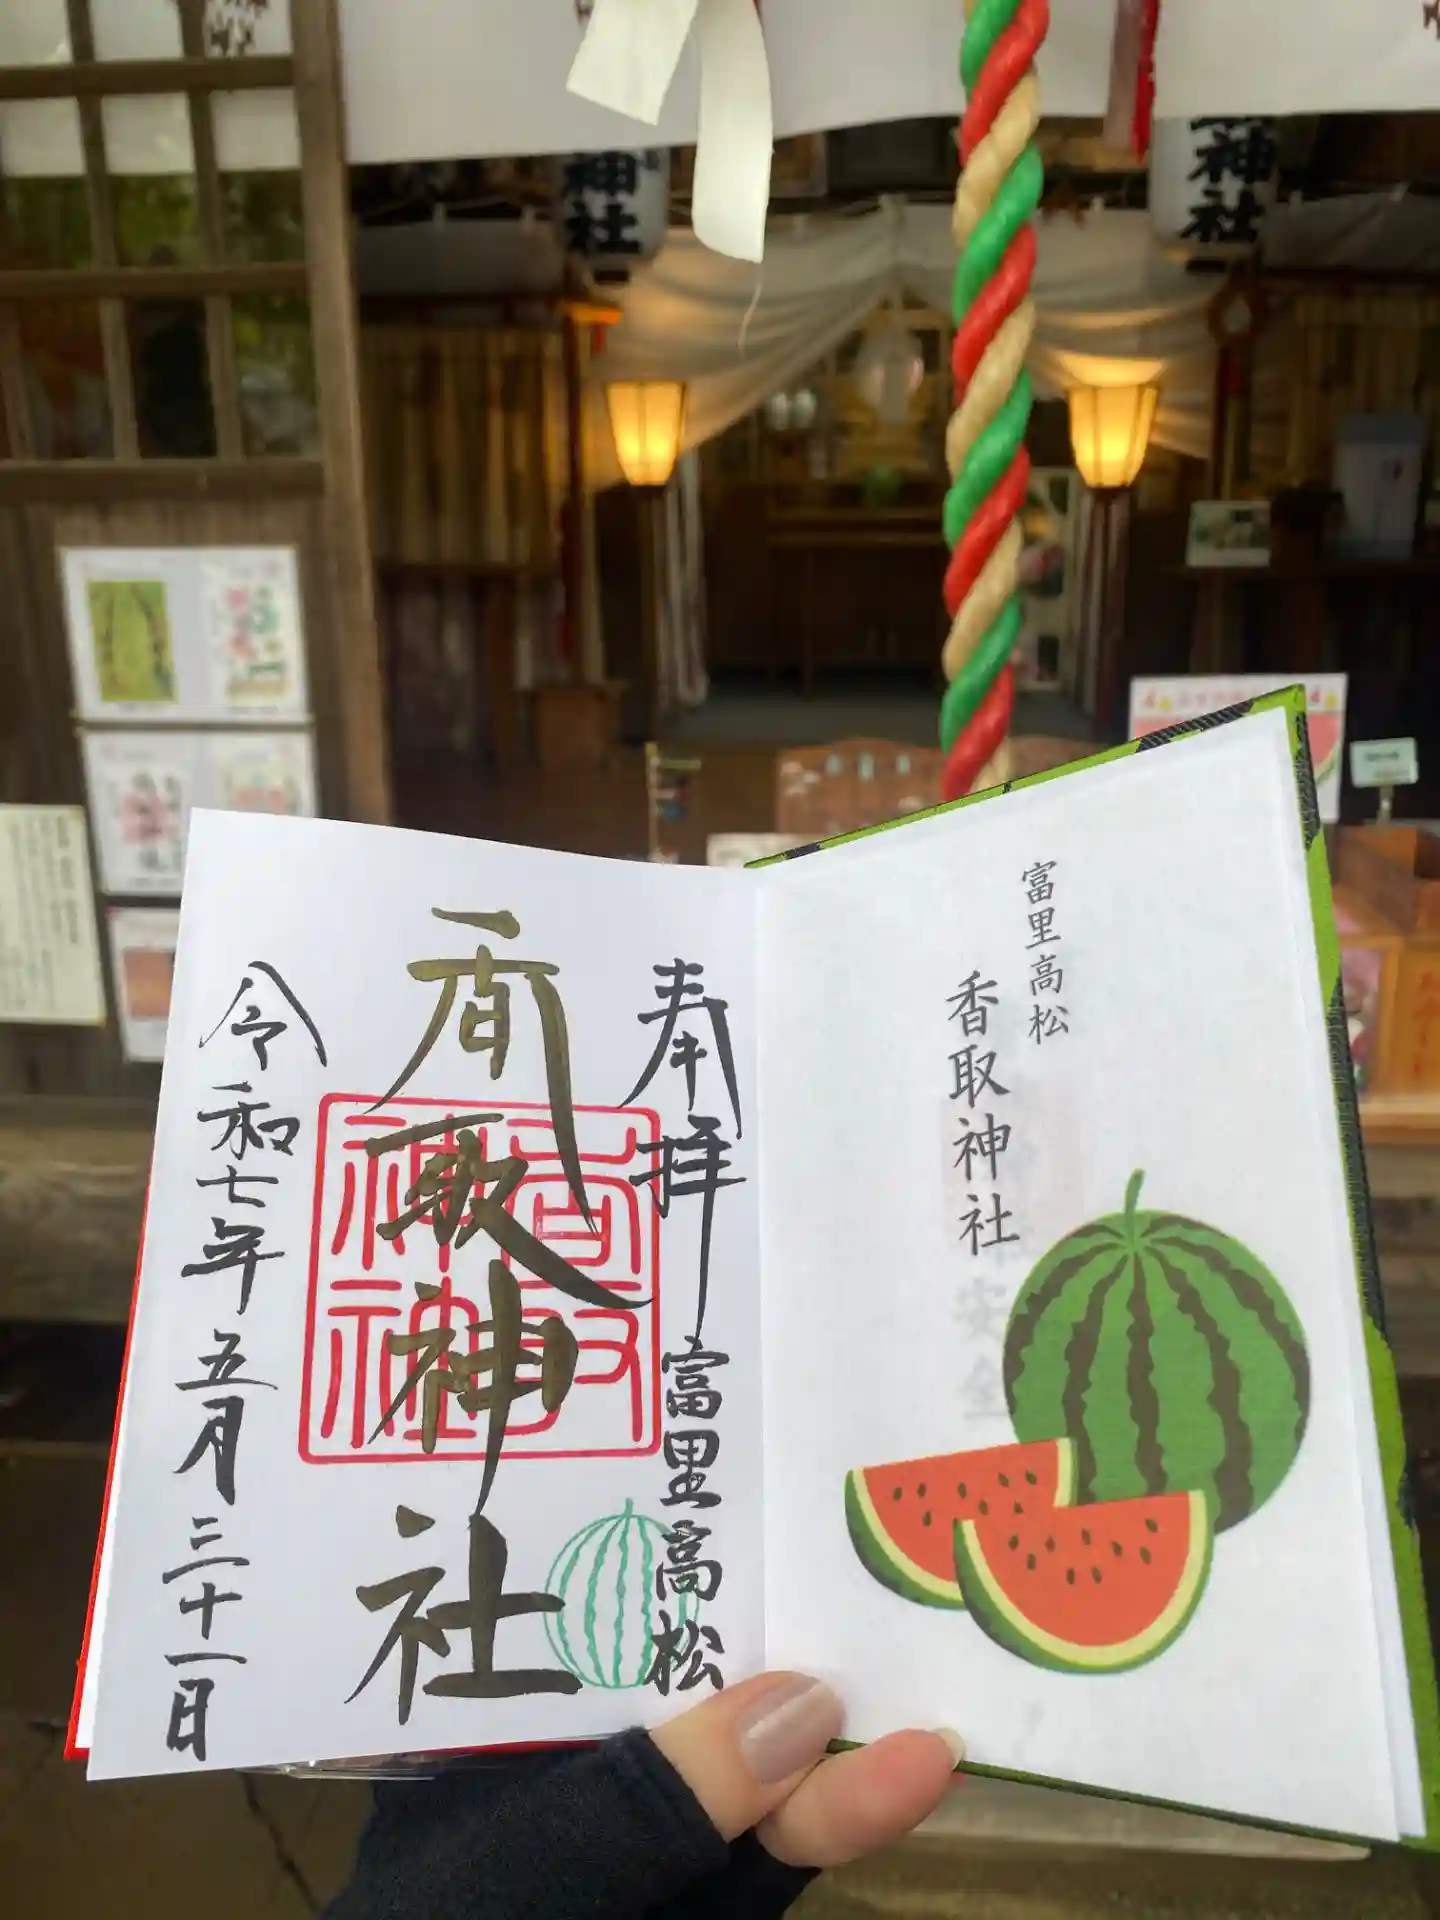 神社
神社
富里高松
香取神社
奉拝
富里高松
香取神社
香取神社
令和七年五月三十一日